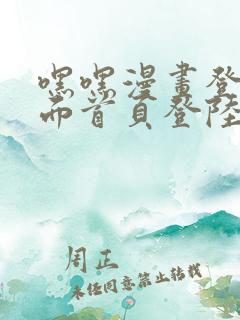 嘿嘿漫畫登
而首頁登陸
周正
未经同意禁止转载